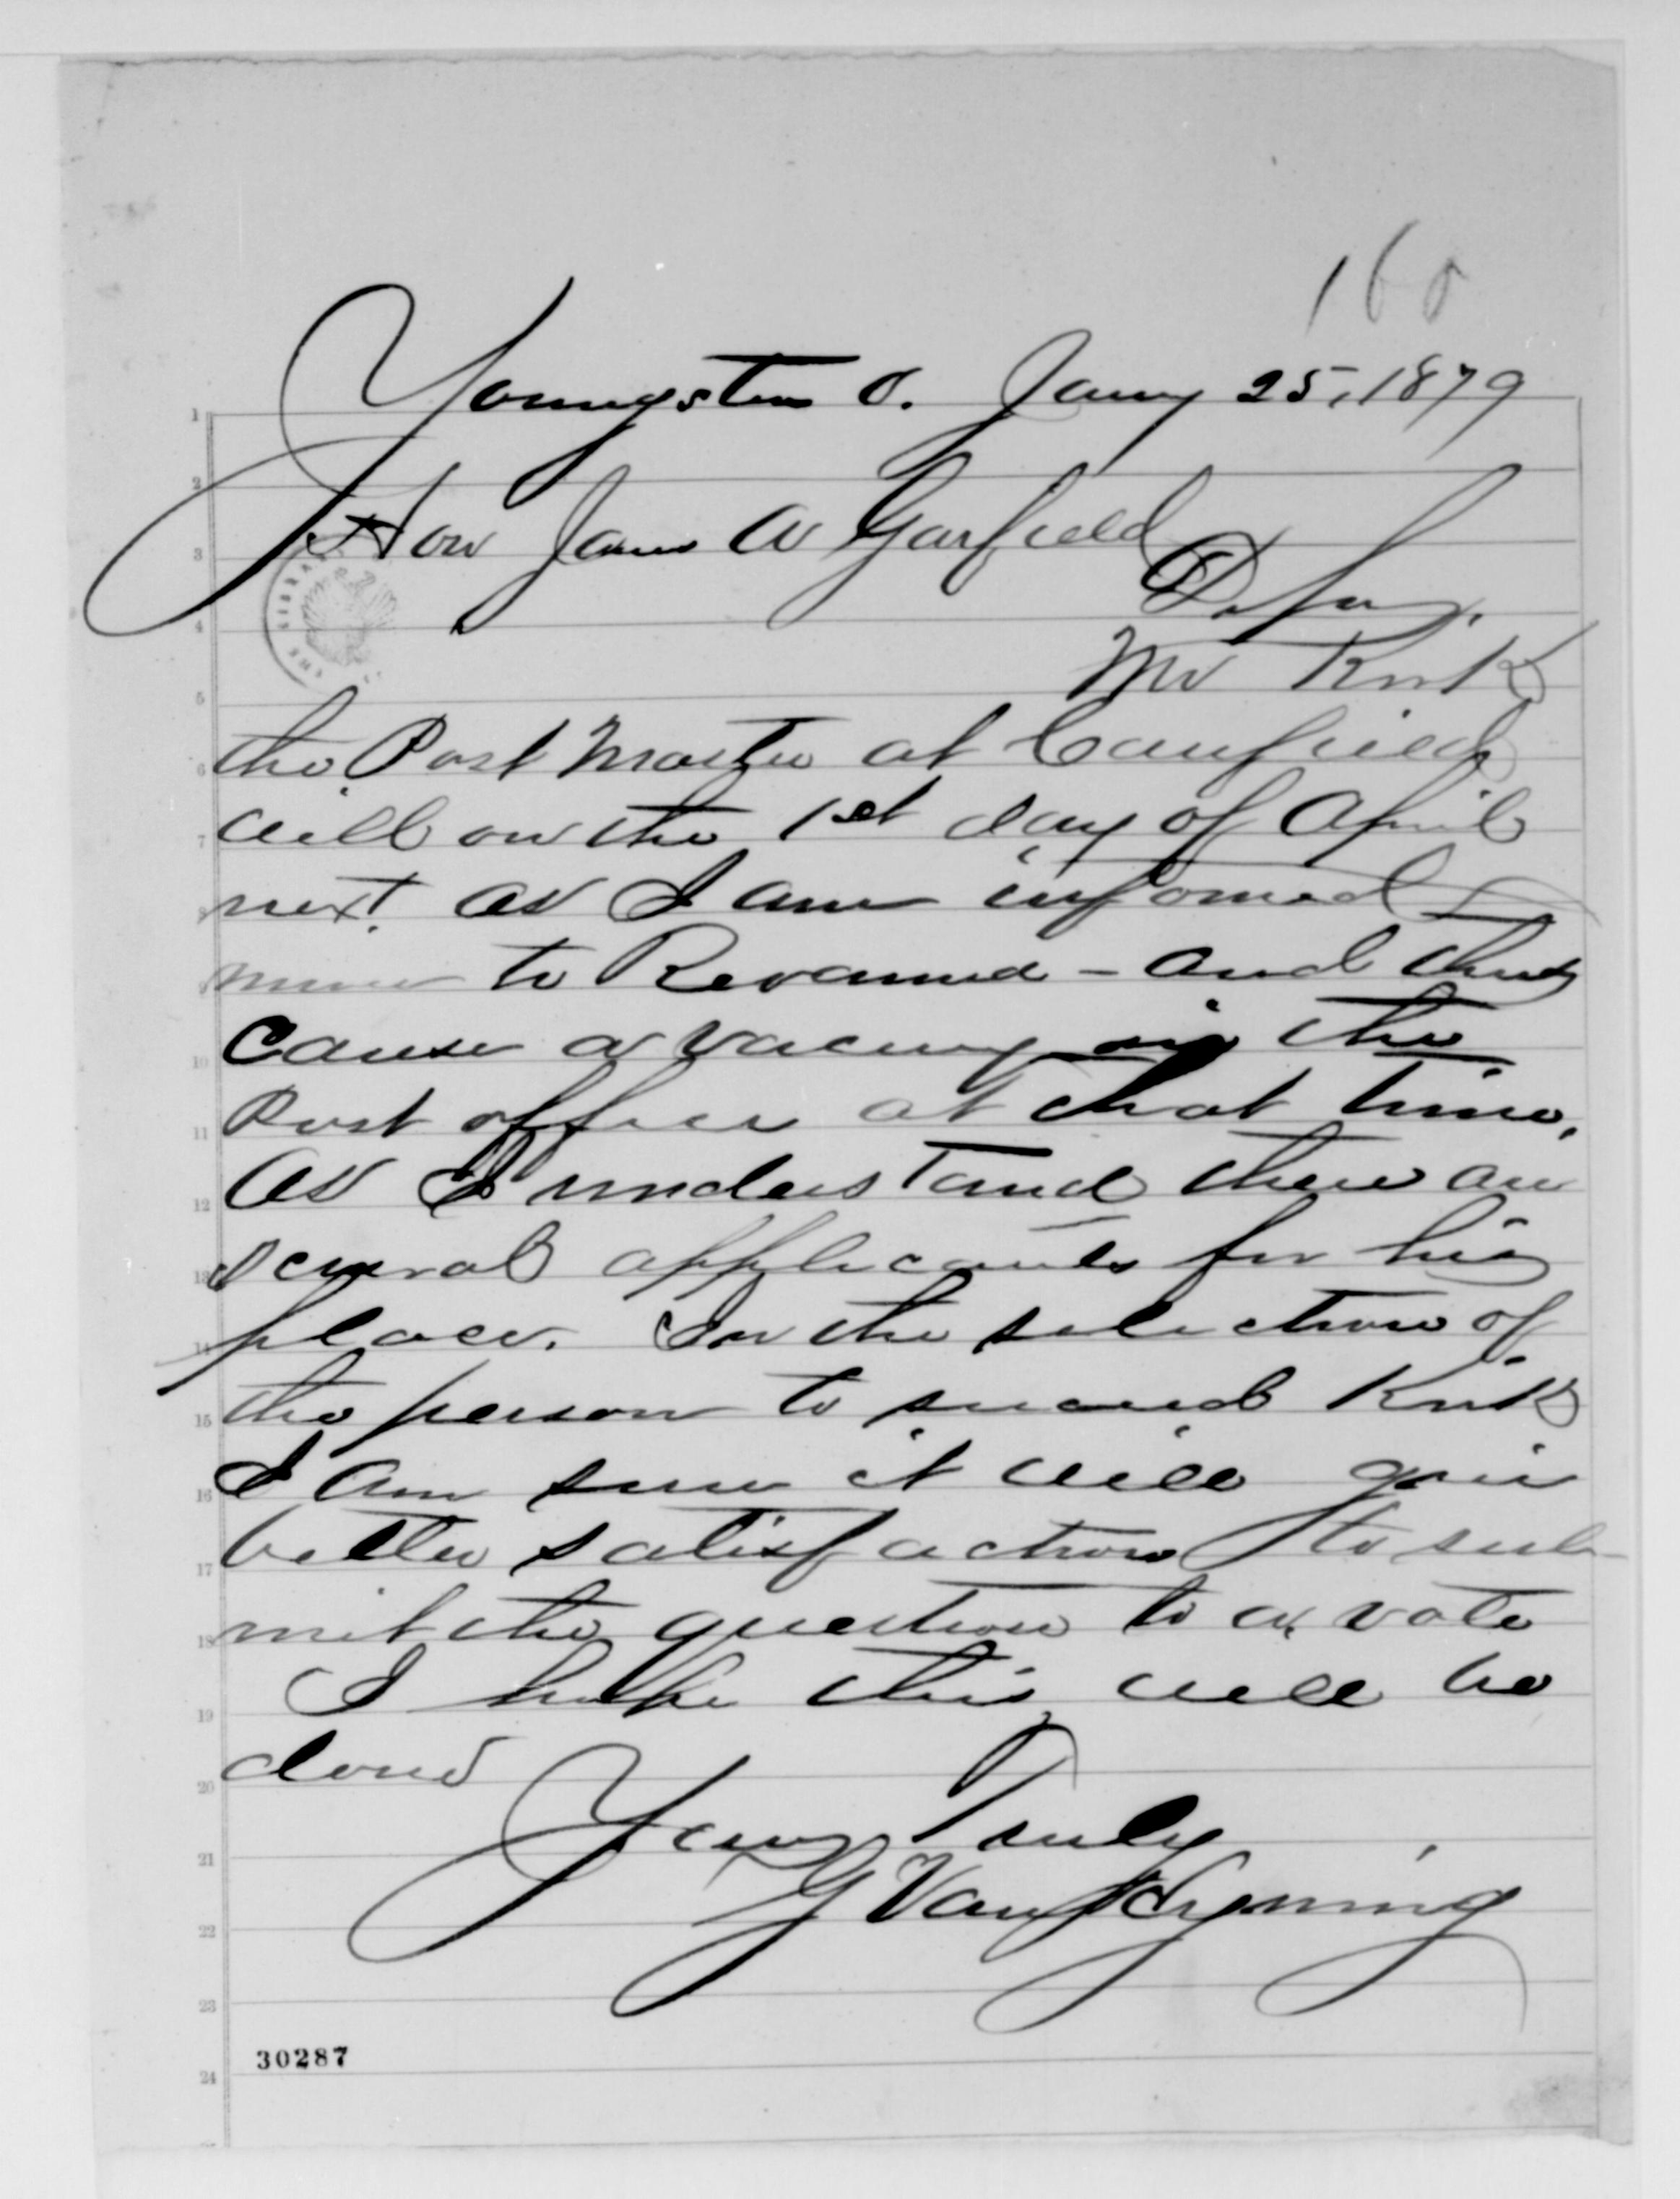 160
Youngstown O. Jany 25, 1879
Hon James A Garfield
Dr Sir,
Mr Kirk
the Post Master at Canfield
will on the 1st day of April
next, as I am informed
move to Ravenna - and thus
cause a vacancy in the
Post office at that time.
As I understand there are
several applicants for his
place. In the selection of
the person to succeed Kirk
I am sure it will give
better satisfaction to sub-
mit the question to a vote
I hope this will be
done
Yours Truly
G Van Hyning
30287